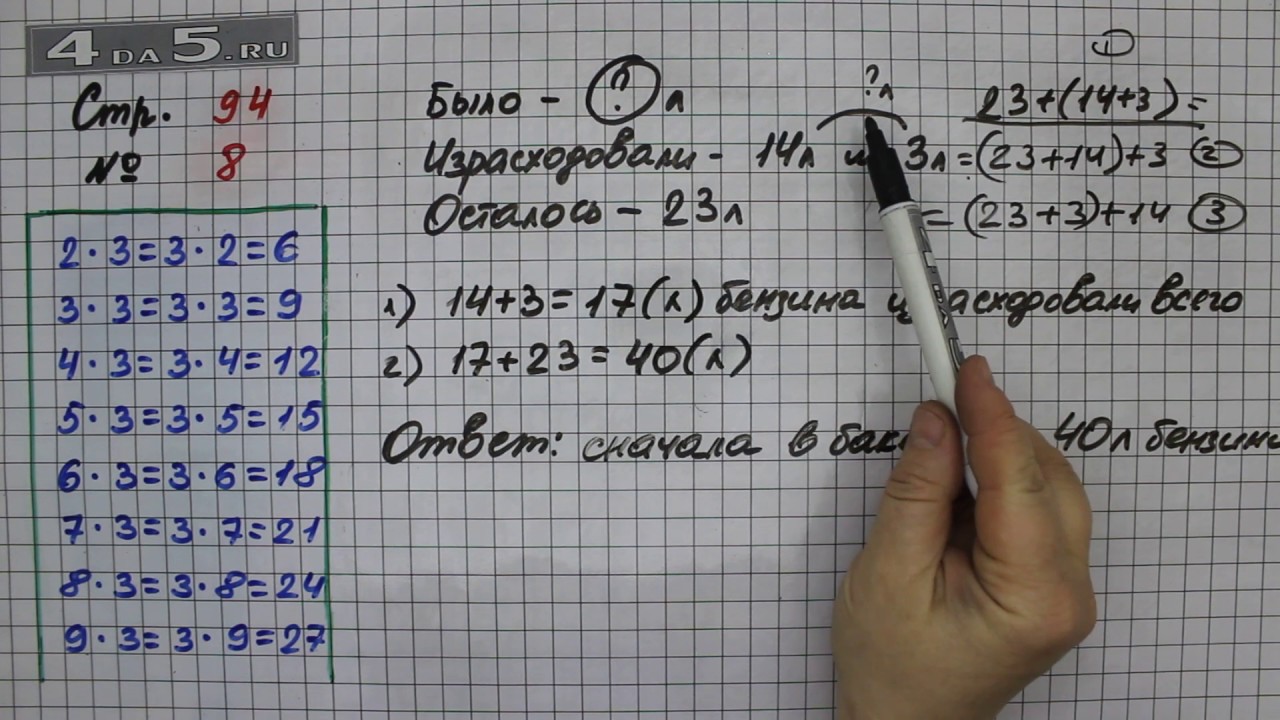 4DA5.RU
Стр. 94
№ 8
2·3=3·2=6
3·3=3·3=9
4·3=3·4=12
5·3=3·5=15
6·3=3·6=18
7·3=3·7=21
8·3=3·8=24
9·3=3·9=27
Было - ? л
? л
Израсходовали - 14л и 3л
Осталось - 23л
1
23+(14+3)=
=(23+14)+3 2
=(23+3)+14 3
1) 14+3=17(л) бензина израсходовали всего
2) 17+23=40(л)
Ответ: сначала в 40л бензина